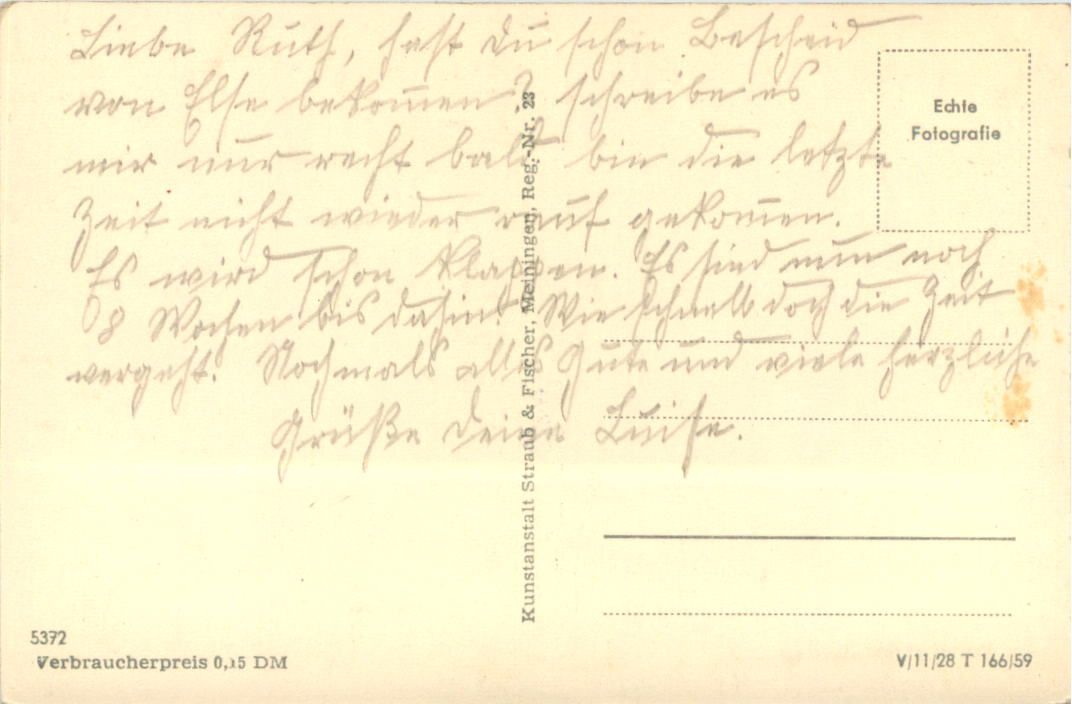 Liebe Ruth, hast du schon Bescheid
von Else bekommen? schreibe es
mir nur recht bald bin die letzte
Zeit nicht wieder rauf gekommen.
Es wird schon klappen. Es sind nun noch
8 Wochen bis dahin. Wie schnell doch die Zeit
vergeht. Nochmals alles Gute und viele herzliche
Grüße deine Luise.
Echte
Fotografie
Kunstanstalt Straub & Fischer, Meiningen, Reg.-Nr. 23
5372
Verbraucherpreis 0,15 DM
V/11/28 T 166/59